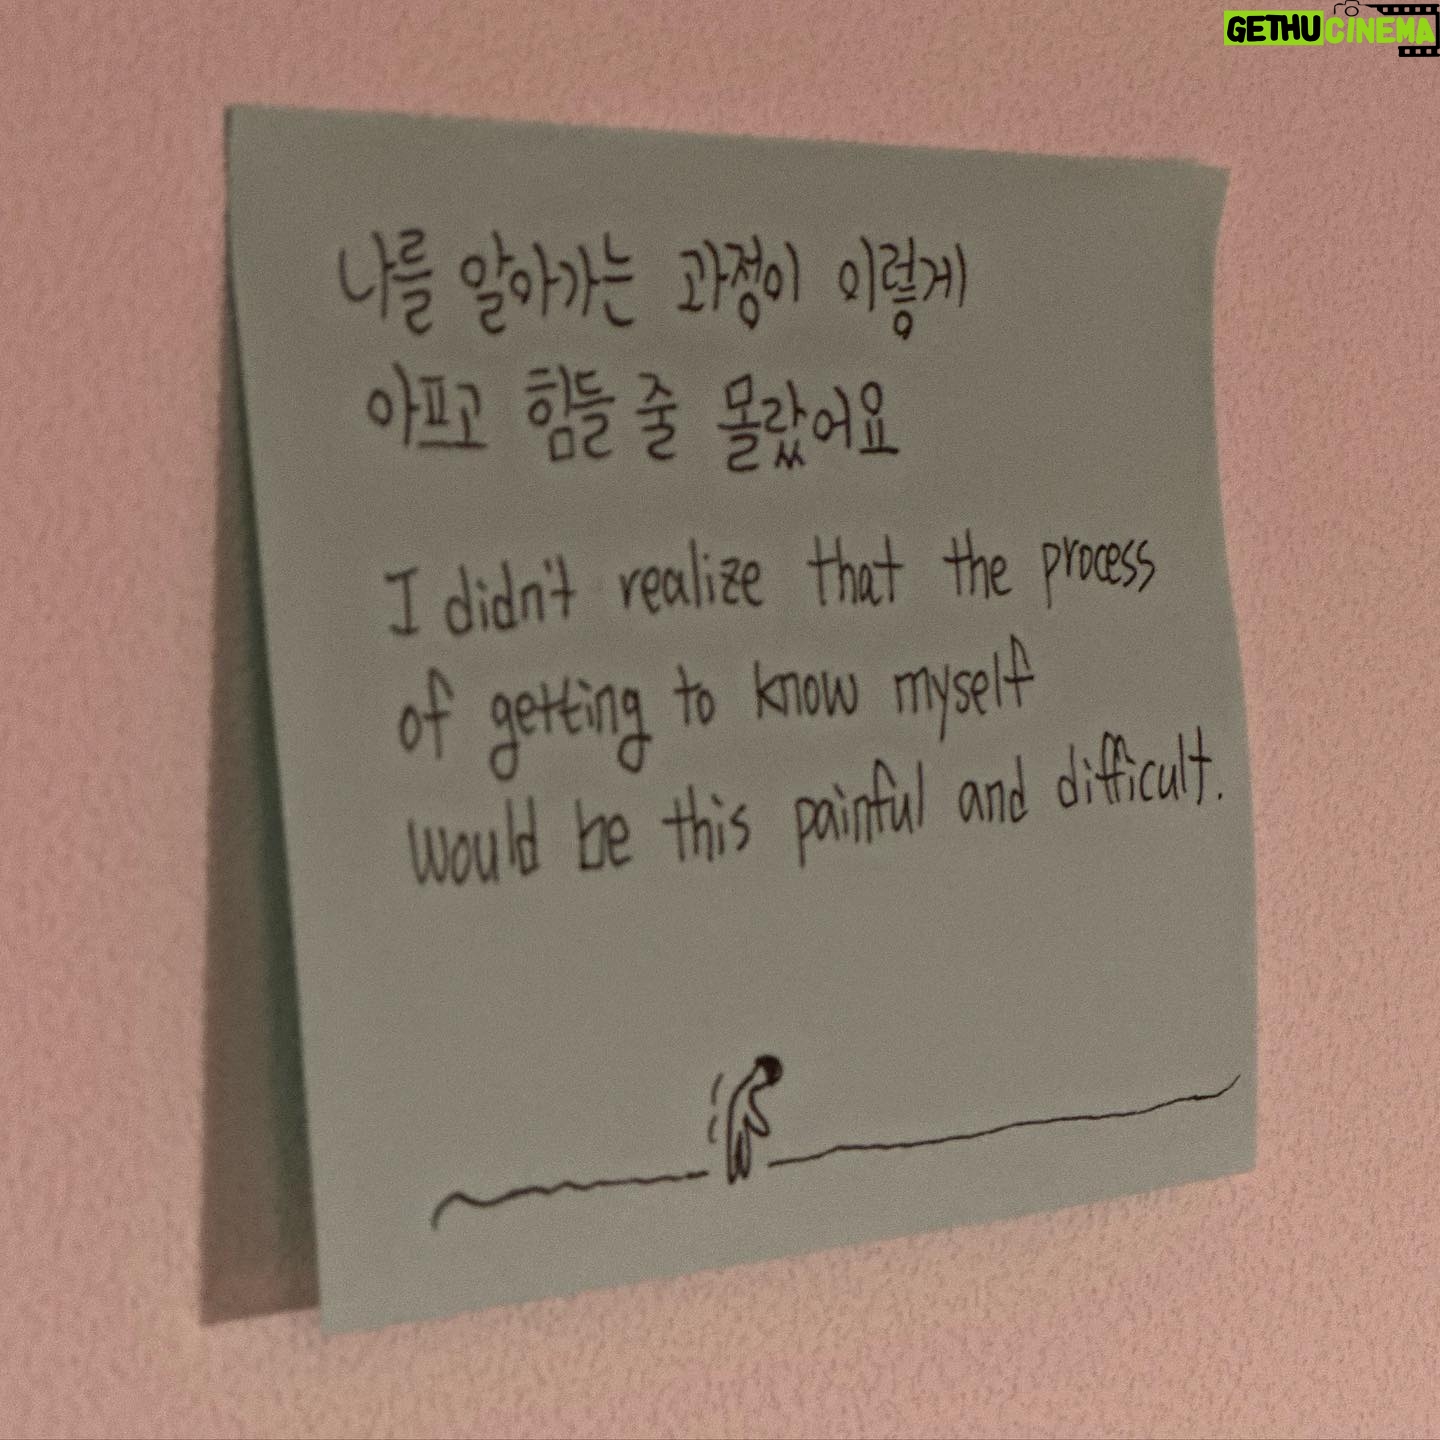 GETHUCINEMA
나를 알아가는 과정이 이렇게
아프고 힘들 줄 몰랐어요
I didn't realize that the process
of getting to know myself
would be this painful and difficult.